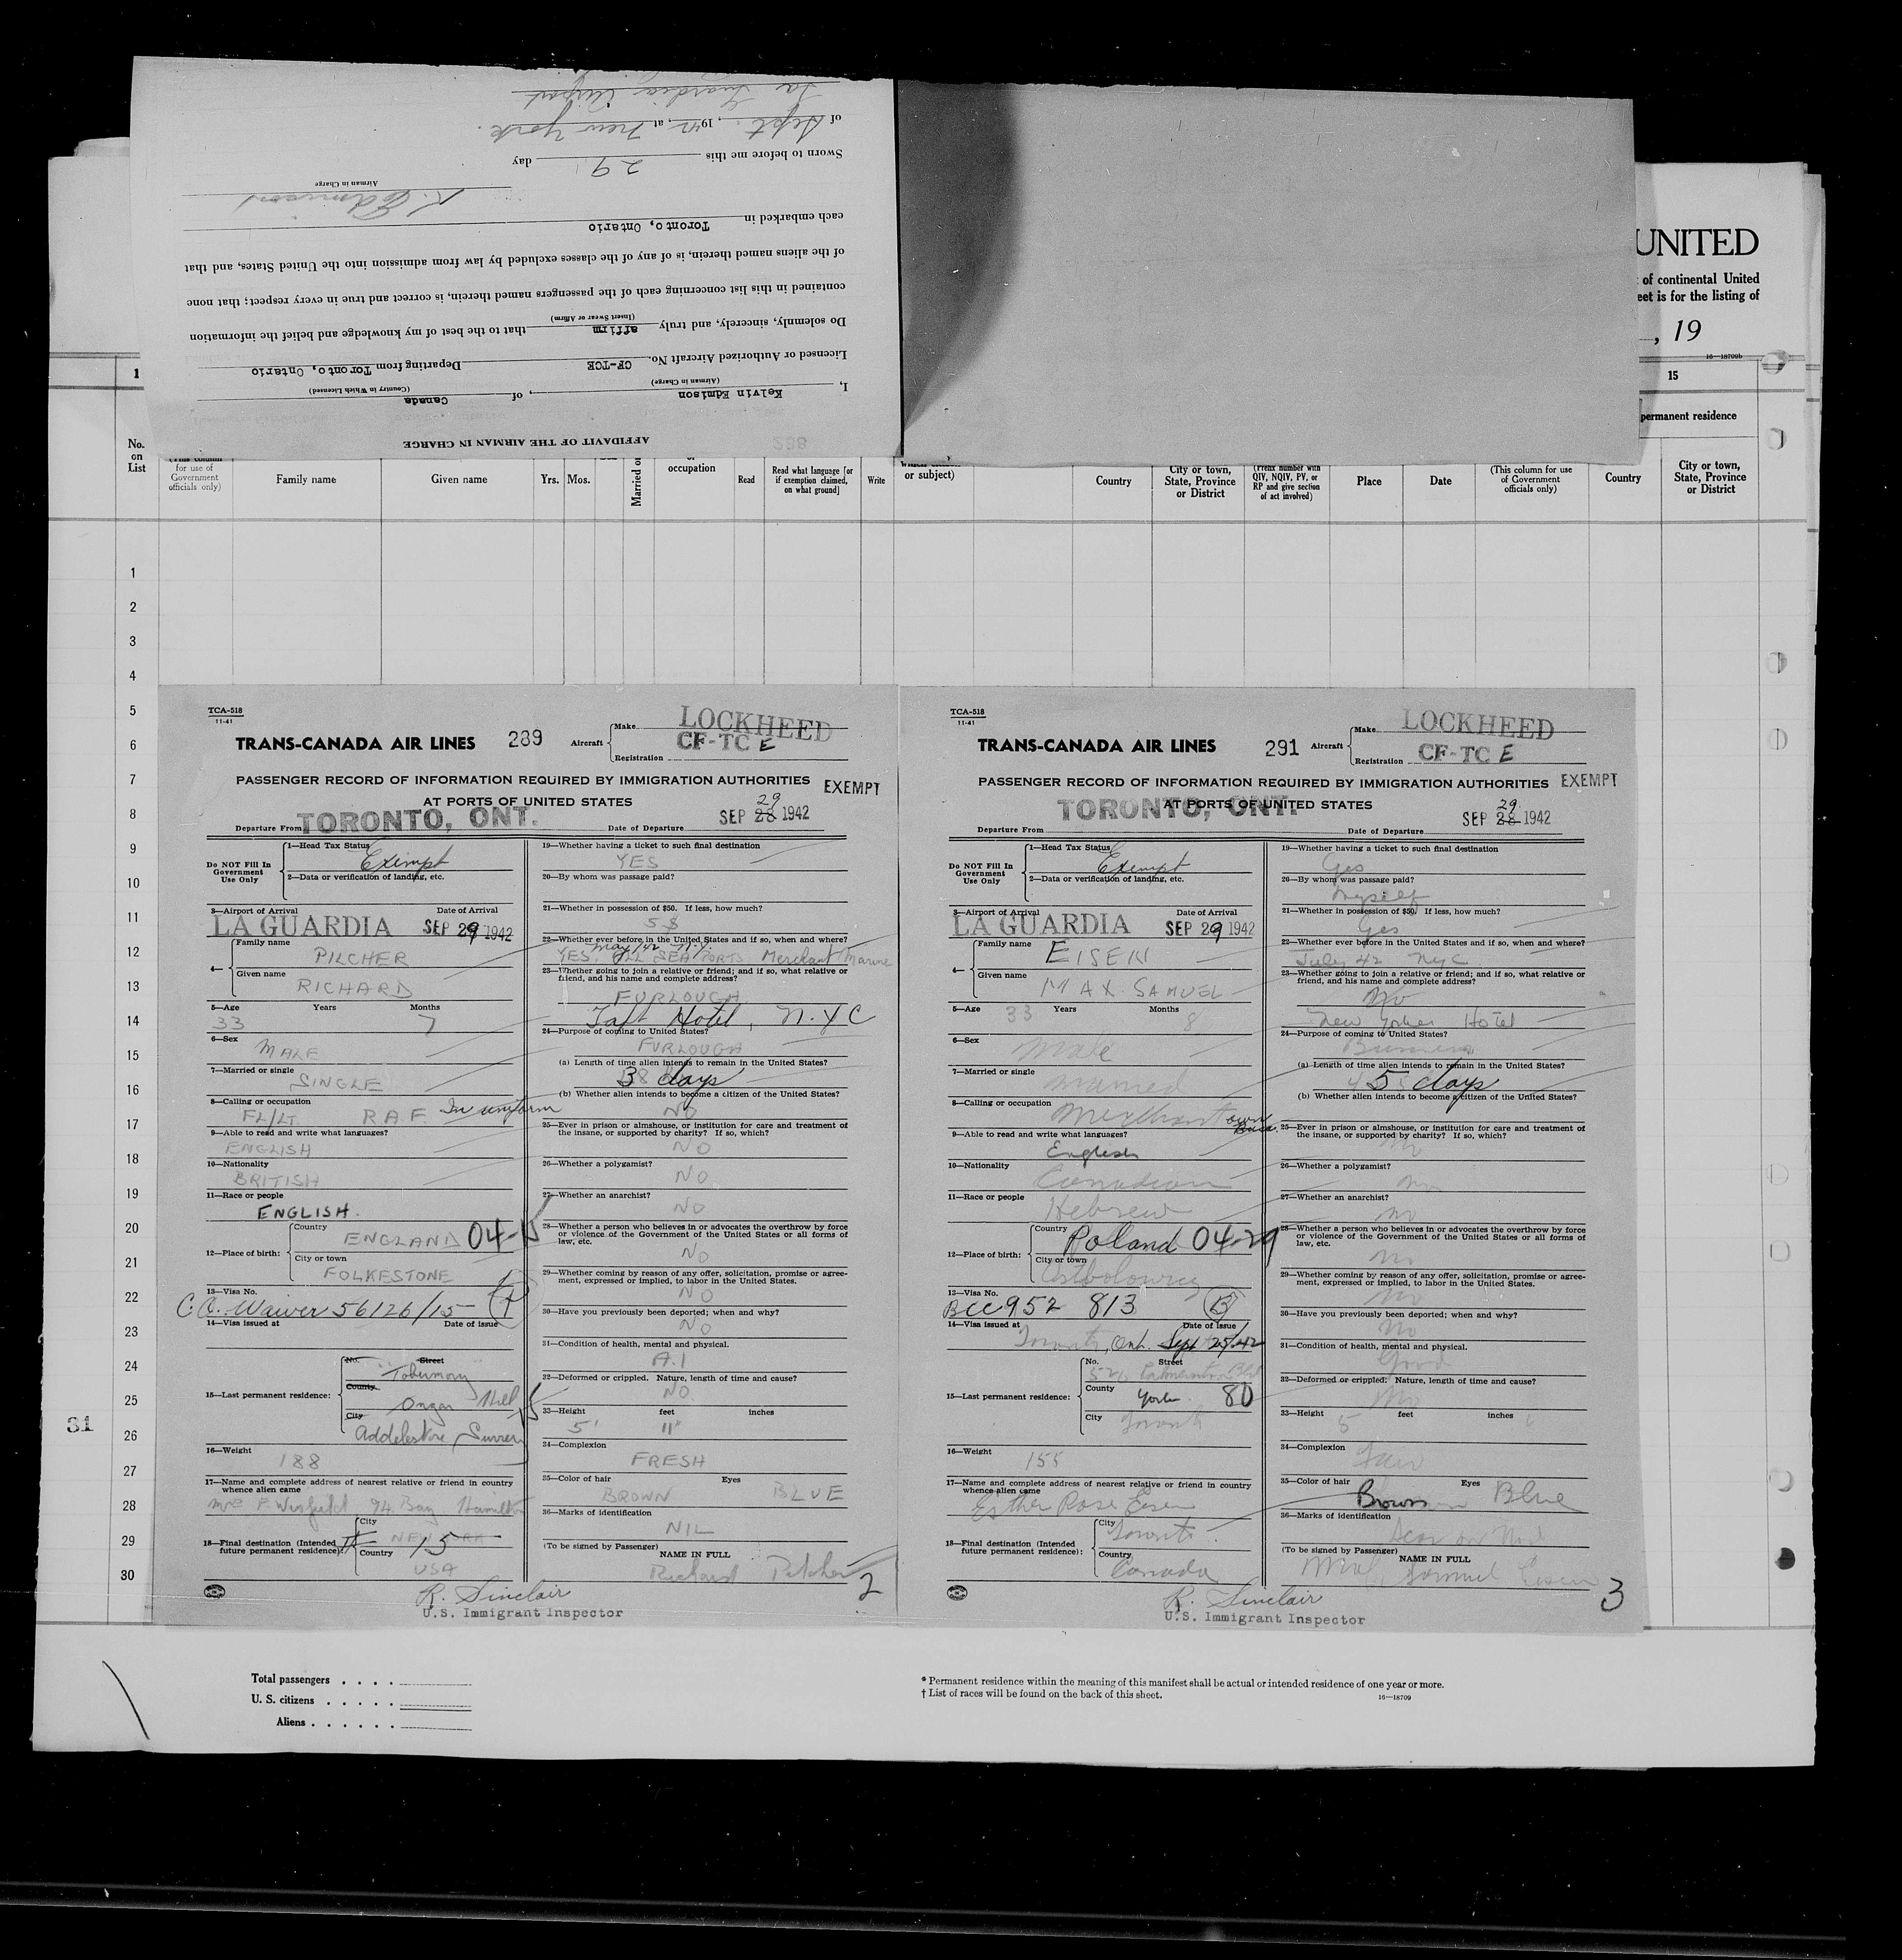 AFFIDAVIT OF THE AIRMAN IN CHARGE
I, Kelvin Edmison, of Canada
(Airman in Charge) (Country in Which Licensed)
Licensed or Authorized Aircraft No. CF-TCE Departing from Toronto, Ontario
Do solemnly, sincerely, and truly affirm that to the best of my knowledge and belief the information
(Insert Swear or Affirm)
contained in this list concerning each of the passengers named therein, is correct and true in every respect; that none
of the aliens named therein, is of any of the classes excluded by law from admission into the United States, and that
each embarked in Toronto, Ontario
K. Edmison
Airman in Charge
Sworn to before me this 29 day
of Sept., 1942, at New York.
La Guardia Airport
UNITED
of continental United
eet is for the listing of
, 19
16—18709b
1
15
permanent residence
No. on List
(This column for use of Government officials only)
Family name
Given name
Yrs. Mos.
Married or
occupation
Read
Read what language [or if exemption claimed, on what ground]
Write
or subject)
Country
City or town, State, Province or District
(Prefix number with QIV, NQIV, PV, or RP and give section of act involved)
Place
Date
(This column for use of Government officials only)
Country
City or town, State, Province or District
1
2
3
4
5
6
7
8
9
10
11
12
13
14
15
16
17
18
19
20
21
22
23
24
25
26
27
28
29
30
31
TCA-518
11-41
TRANS-CANADA AIR LINES 289 Aircraft Make LOCKHEED
Registration CF-TC E
PASSENGER RECORD OF INFORMATION REQUIRED BY IMMIGRATION AUTHORITIES EXEMPT
AT PORTS OF UNITED STATES
29
Departure From TORONTO, ONT. Date of Departure SEP 28 1942
Do NOT Fill In Government Use Only
1—Head Tax Status Exempt
2—Data or verification of landing, etc.
3—Airport of Arrival Date of Arrival
LA GUARDIA SEP 29 1942
4— Family name PILCHER
Given name RICHARD
5—Age Years Months
33 7
6—Sex
MALE
7—Married or single
SINGLE
8—Calling or occupation
FL/LT R.A.F. In uniform
9—Able to read and write what languages?
ENGLISH
10—Nationality
BRITISH
11—Race or people
ENGLISH.
12—Place of birth: Country ENGLAND 04-15
City or town
FOLKESTONE
13—Visa No.
C.O. Waiver 56126/15
14—Visa issued at Date of issue
15—Last permanent residence: No. Street
Tobermory
County
Ongar Hill
City
Addlestone, Surrey
16—Weight
188
17—Name and complete address of nearest relative or friend in country whence alien came
94 Bay Hamilton
18—Final destination (Intended future permanent residence): City NEW YORK
Country 15
USA
19—Whether having a ticket to such final destination
YES
20—By whom was passage paid?
21—Whether in possession of $50. If less, how much?
5$
22—Whether ever before in the United States and if so, when and where?
May/42 N.Y.
YES. ALL SEA PORTS Merchant Marine
23—Whether going to join a relative or friend; and if so, what relative or friend, and his name and complete address?
FURLOUGH
Taft Hotel, N.Y.C
24—Purpose of coming to United States?
FURLOUGH
(a) Length of time alien intends to remain in the United States?
3 days
(b) Whether alien intends to become a citizen of the United States?
NO
25—Ever in prison or almshouse, or institution for care and treatment of the insane, or supported by charity? If so, which?
NO
26—Whether a polygamist?
NO
27—Whether an anarchist?
NO
28—Whether a person who believes in or advocates the overthrow by force or violence of the Government of the United States or all forms of law, etc.
NO
29—Whether coming by reason of any offer, solicitation, promise or agreement, expressed or implied, to labor in the United States.
NO
30—Have you previously been deported; when and why?
NO
31—Condition of health, mental and physical.
A.1
32—Deformed or crippled. Nature, length of time and cause?
NO.
33—Height feet inches
5' 11"
34—Complexion
FRESH
35—Color of hair Eyes
BROWN BLUE
36—Marks of identification
NIL
(To be signed by Passenger) NAME IN FULL
Richard Pilcher 2
R. Sinclair
U.S. Immigrant Inspector
TCA-518
11-41
TRANS-CANADA AIR LINES 291 Aircraft Make LOCKHEED
Registration CF-TC E
PASSENGER RECORD OF INFORMATION REQUIRED BY IMMIGRATION AUTHORITIES EXEMPT
AT PORTS OF UNITED STATES
29
Departure From TORONTO, ONT. Date of Departure SEP 28 1942
Do NOT Fill In Government Use Only
1—Head Tax Status Exempt
2—Data or verification of landing, etc.
3—Airport of Arrival Date of Arrival
LA GUARDIA SEP 29 1942
4— Family name EISEN
Given name MAX SAMUEL
5—Age 33 Years Months 8
6—Sex
Male
7—Married or single
Married
8—Calling or occupation
Merchant own
9—Able to read and write what languages?
English
10—Nationality
Canadian
11—Race or people
Hebrew
12—Place of birth: Country Poland 04-29
City or town
13—Visa No.
BCC 952 813 B
14—Visa issued at Date of issue
Toronto, Ont. Sept 25/42
15—Last permanent residence: No. Street
County York 80
City Toronto
16—Weight
155
17—Name and complete address of nearest relative or friend in country whence alien came
Esther Rose Eisen
18—Final destination (Intended future permanent residence): City Toronto
Country
Canada
19—Whether having a ticket to such final destination
Yes
20—By whom was passage paid?
Myself
21—Whether in possession of $50. If less, how much?
Yes
22—Whether ever before in the United States and if so, when and where?
July 42 NYC
23—Whether going to join a relative or friend; and if so, what relative or friend, and his name and complete address?
No
New Yorker Hotel
24—Purpose of coming to United States?
Business
(a) Length of time alien intends to remain in the United States?
5 days
(b) Whether alien intends to become a citizen of the United States?
25—Ever in prison or almshouse, or institution for care and treatment of the insane, or supported by charity? If so, which?
No
26—Whether a polygamist?
No
27—Whether an anarchist?
No
28—Whether a person who believes in or advocates the overthrow by force or violence of the Government of the United States or all forms of law, etc.
No
29—Whether coming by reason of any offer, solicitation, promise or agreement, expressed or implied, to labor in the United States.
No
30—Have you previously been deported; when and why?
No
31—Condition of health, mental and physical.
Good
32—Deformed or crippled. Nature, length of time and cause?
No
33—Height feet inches
5 6
34—Complexion
Fair
35—Color of hair Eyes
Brown Blue
36—Marks of identification
Scar on
(To be signed by Passenger) NAME IN FULL
Max Samuel Eisen 3
R. Sinclair
U.S. Immigrant Inspector
Total passengers . . . .
U. S. citizens . . . . .
Aliens . . . . . .
* Permanent residence within the meaning of this manifest shall be actual or intended residence of one year or more.
† List of races will be found on the back of this sheet.
16—18709